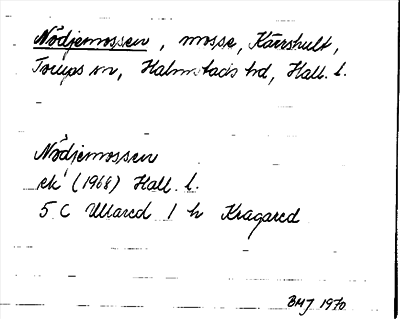 Nödjemossen, mosse, Kärrshult,
Torups sn, Halmstads hd, Hall. l.
Nödjemossen
ek (1968) Hall. l.
5 C Ullared 1 h Kragared
BMJ 1970